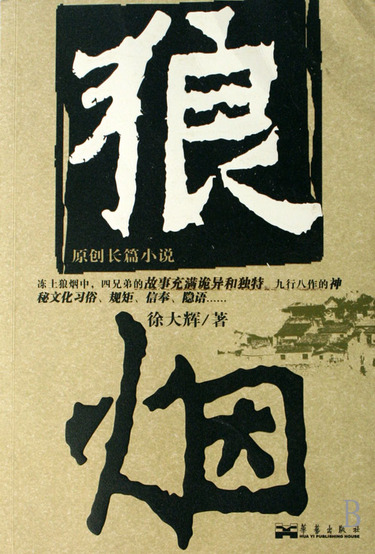 狼
原创长篇小说
冻土狼烟中，四兄弟的故事充满诡异和独特。九行八作的神
秘文化习俗、规矩、信奉、隐语……
徐大辉/著
烟
B
华艺出版社
HUA YI PUBLISHING HOUSE